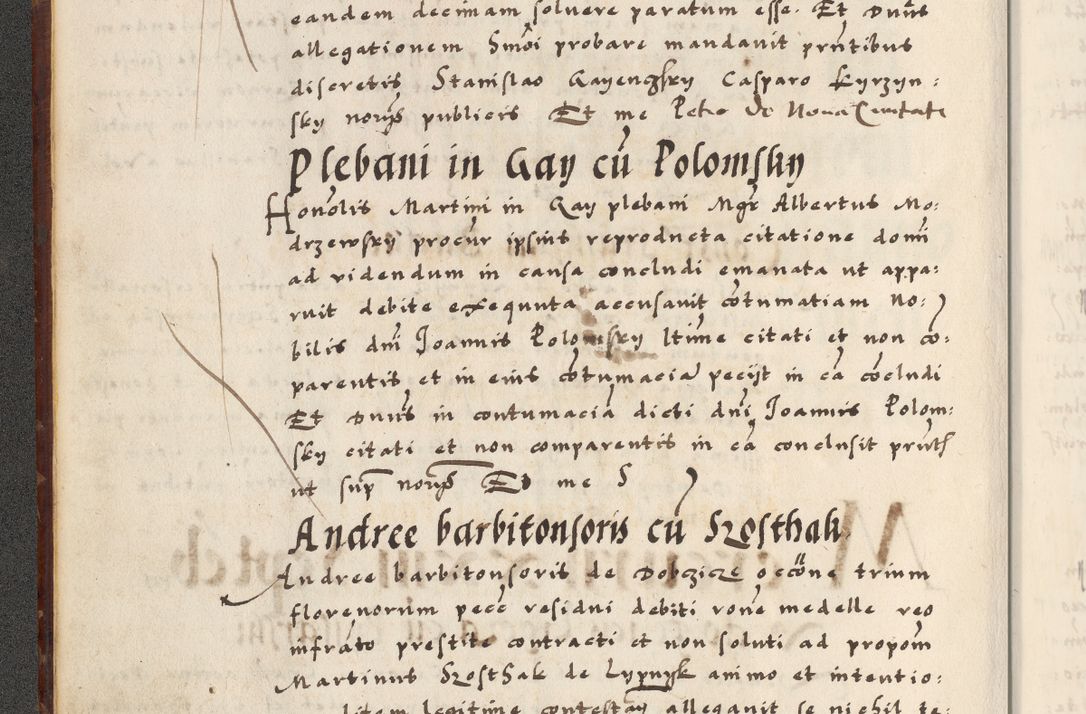 eandem decimam solvere paratum esse. Et Dnus
allegationem Smoi probare mandavit prntibus
discretis Stanislao Gayenczsky Casparo Kyrzyn:
sky norijs publicis Et me Petro de Nova Civitate
Plebani in Gay cu Polomsky
Honolis Martini in Gay plebani Mgr Albertus Mo:
drzewsky procur ipsius reproducta citatione domi
ad videndum in causa concludi emanata ut appa:
ruit debite exequuta accusavit cotumatiam No:
bilis dni Joannis Polomsky ltime citati et non co:
parentis et in eius cotumacia pecijt in ea cocludi
Et Dnus in contumacia dicti dni Joannis Polom:
sky citati et non comparentis in ea conclusit prntb
ut sup norijs Et me S
Andree barbitonsoris cu Szosthak
Andree barbitonsoris de Dobczicze occone trium
florenorum pecc residui debiti rone medelle reo
infrato prestite contracti et non soluti ad propom
Martinus Szosthak de Lypnyk animo et intentio:
litem legitime contestan allegavit se nichil te: